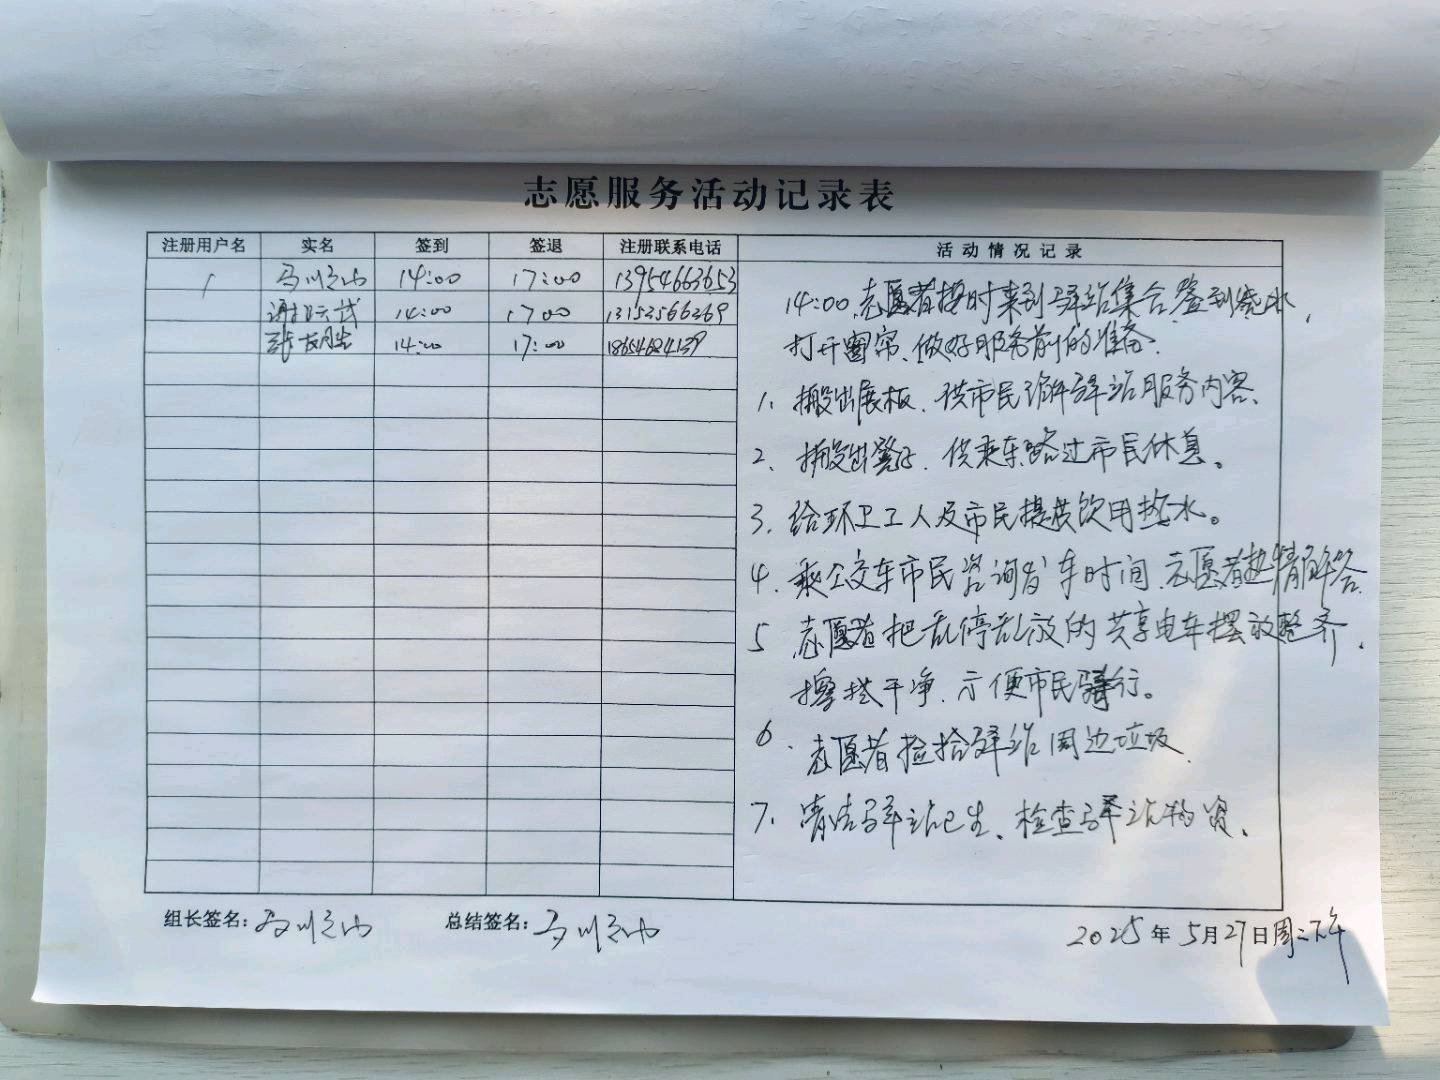 志愿服务活动记录表
注册用户名 实名 签到 签退 注册联系电话 活动情况记录
14:00 17:00 13954663653
谢 14:00 1700 13153566269
张 14:00 17:00
14:00.志愿者按时来到驿站集合,签到烧水,
打开窗帘、做好服务前的准备.
1、搬出展板、供市民了解驿站服务内容、
2、搬出凳子、供乘车路过市民休息。
3、给环卫工人及市民提供饮用热水。
4、乘公交车市民咨询发车时间、志愿者热情解答
5 志愿者把乱停乱放的共享电车摆放整齐,
擦拭干净、方便市民骑行。
6、志愿者捡拾驿站周边垃圾
7、清洁驿站卫生、检查驿站物资、
组长签名: 总结签名: 2025年5月27日周二下午